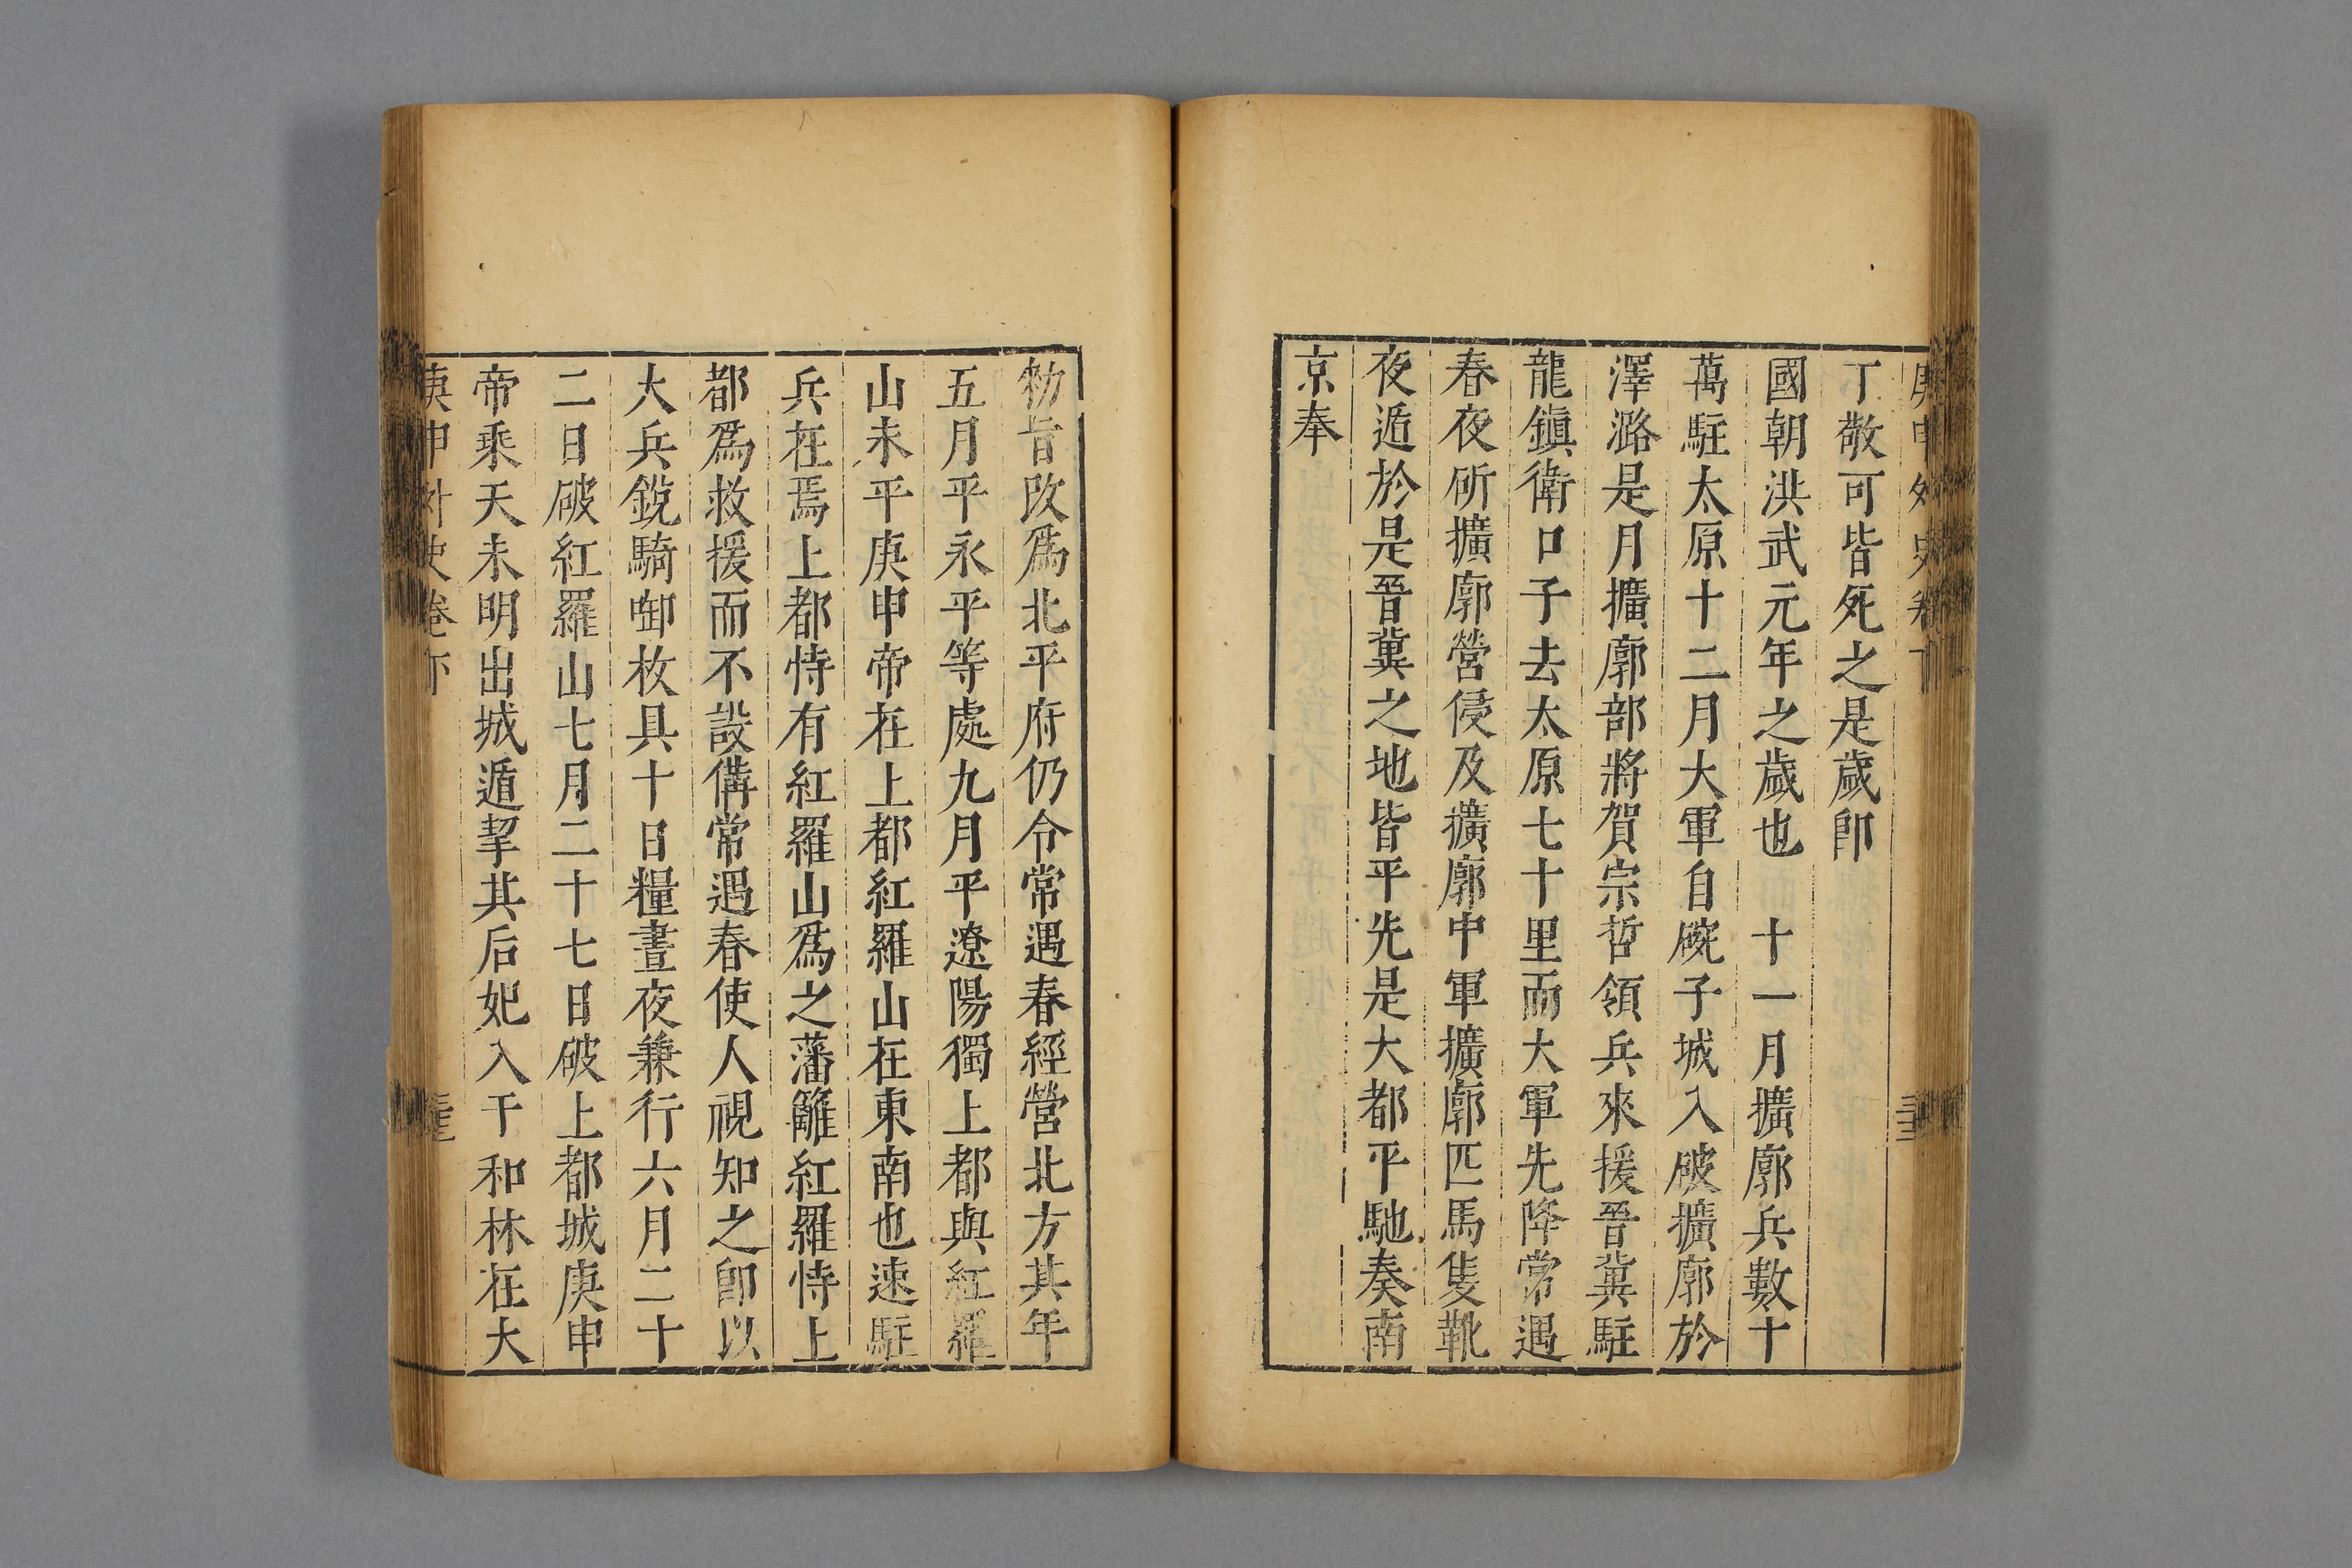 庚申外史卷下
丁敬可皆死之是歲卽
國朝洪武元年之歲也　十一月擴廓兵數十
萬駐太原十二月大軍自碗子城入破擴廓於
澤潞是月擴廓部將賀宗哲領兵來援晉冀駐
龍鎭衛口子去太原七十里而大軍先降常遇
春夜斫擴廓營侵及擴廓中軍擴廓匹馬隻靴
夜遁於是晉冀之地皆平先是大都平馳奏南
京奉
勑旨改爲北平府仍令常遇春經營北方其年
五月平永平等處九月平遼陽獨上都與紅羅
山未平庚申帝在上都紅羅山在東南也速駐
兵在焉上都恃有紅羅山爲之藩籬紅羅恃上
都爲救援而不設備常遇春使人視知之卽以
大兵銳騎啣枚具十日糧晝夜兼行六月二十
二日破紅羅山七月二十七日破上都城庚申
帝乘天未明出城遁挈其后妃入于和林在大
庚申外史卷下